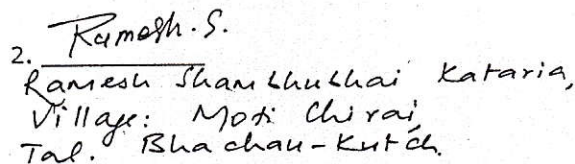 2. Ramesh. S.
Ramesh Shambhubhai Kataria,
Village: Moti Chirai,
Tal. Bhachau-Kutch.